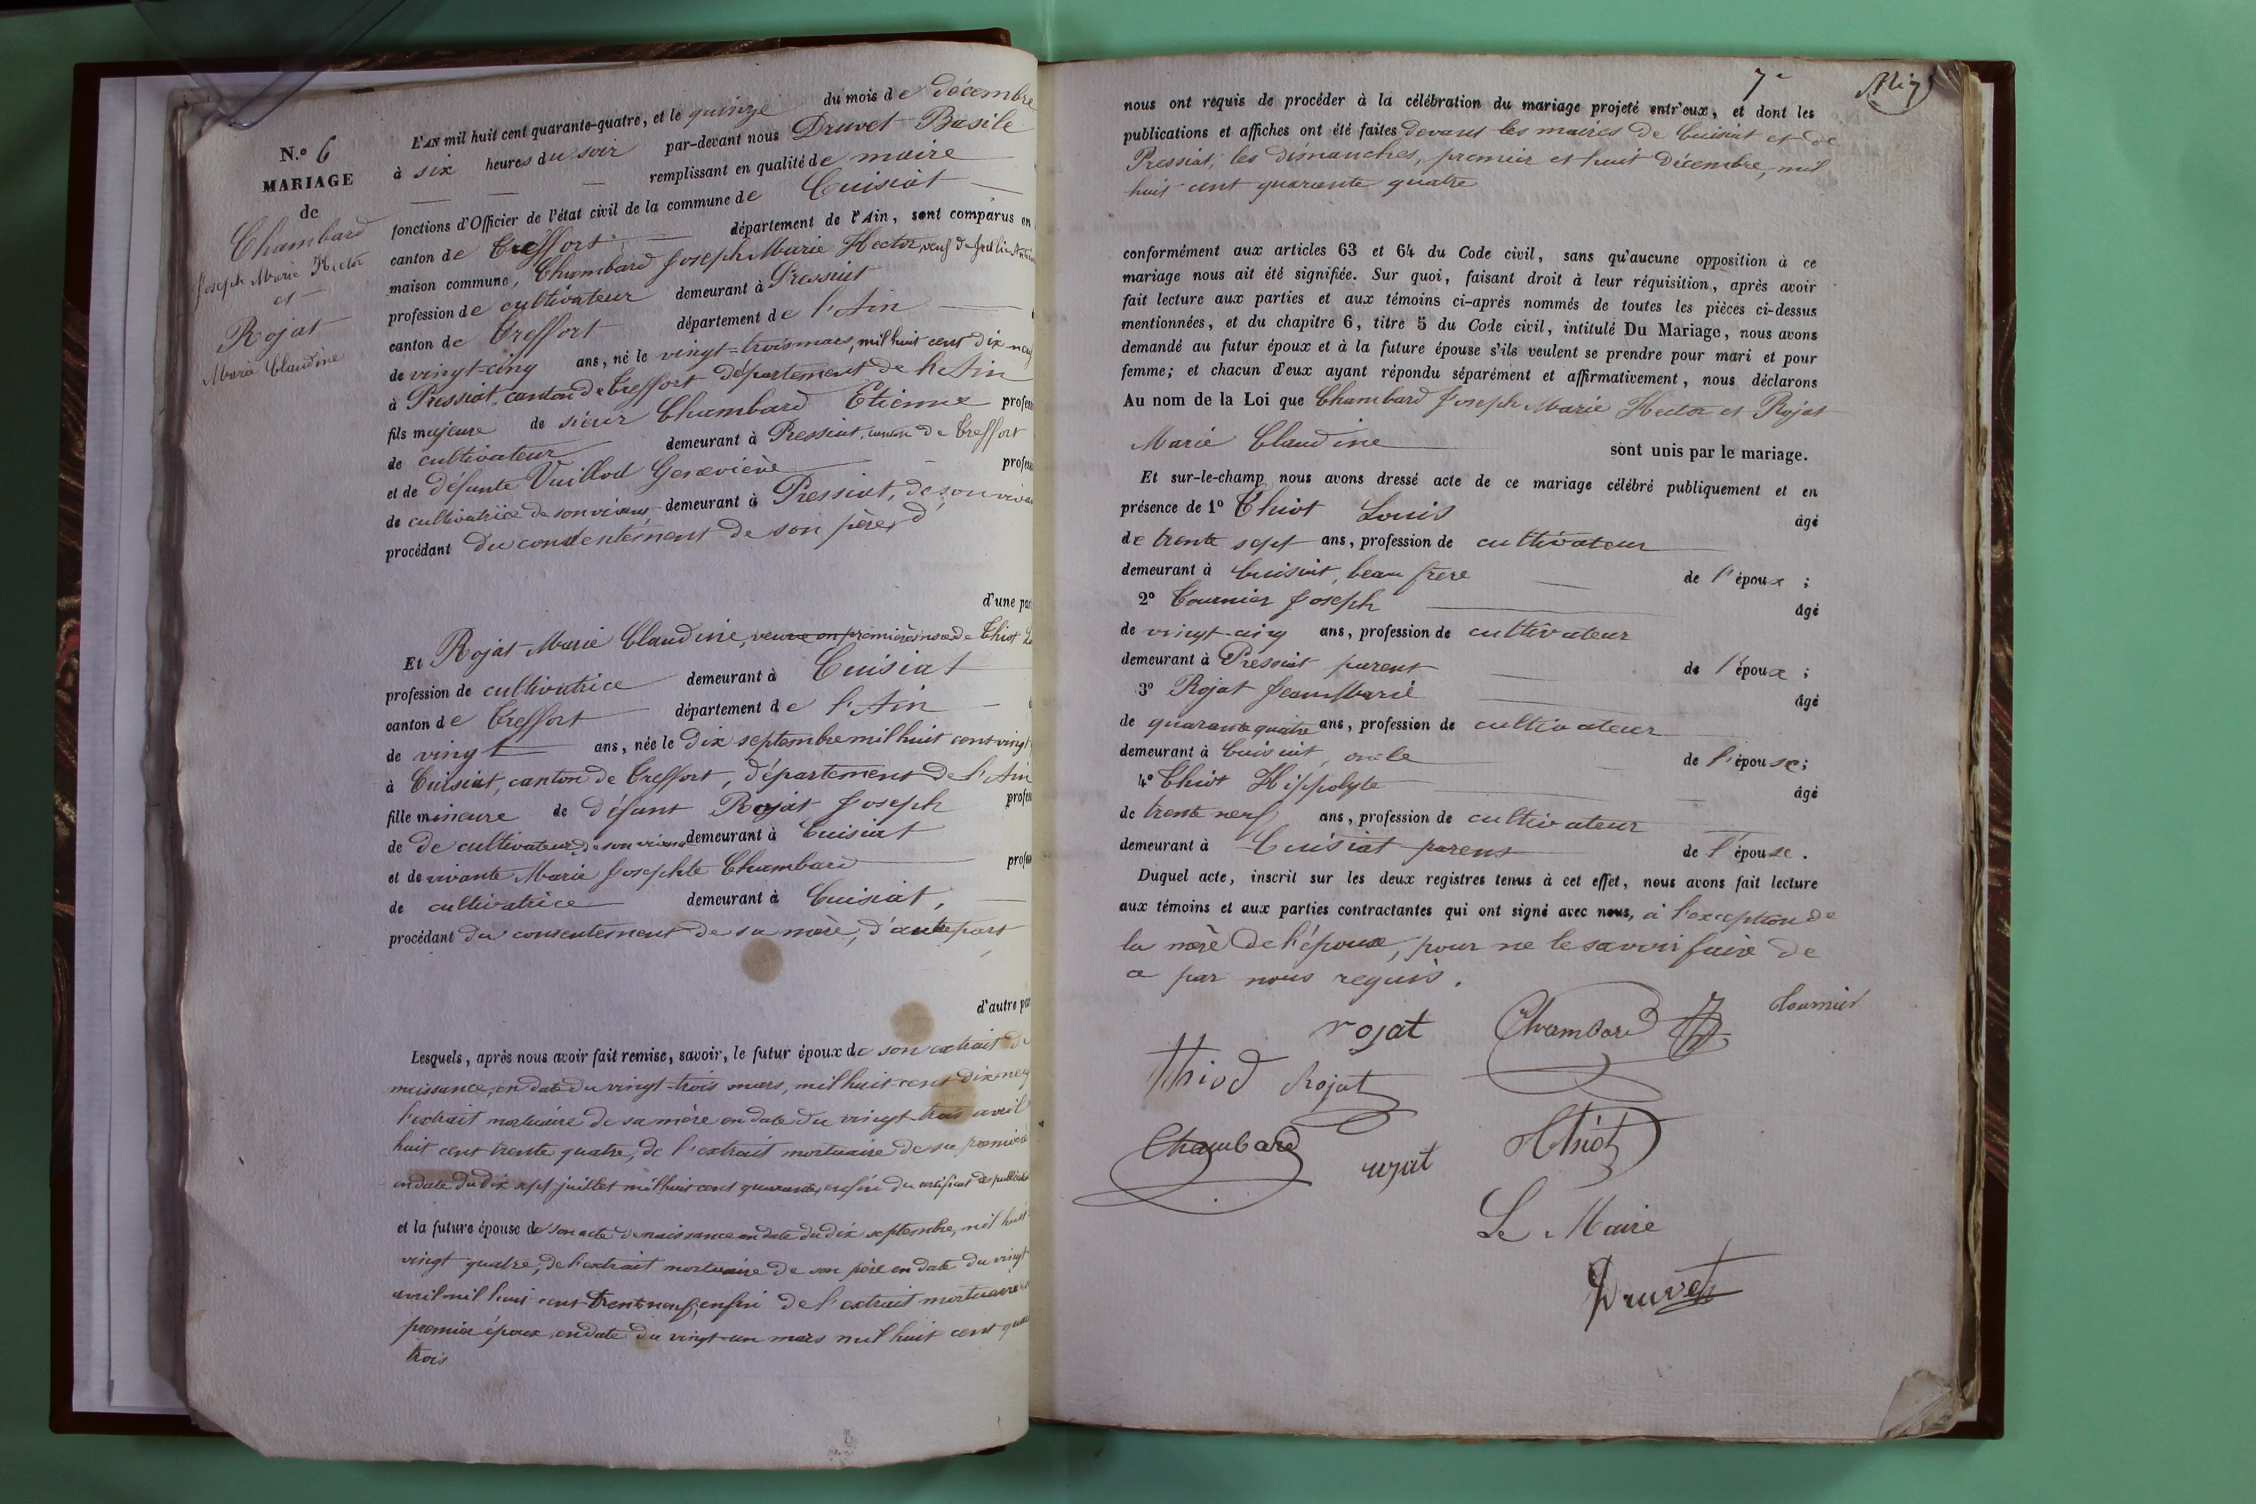 N.º 6
MARIAGE
de
Chambard
Joseph Marie Hector
et
Rojat
Marie Claudine
L'AN mil huit cent quarante-quatre, et le quinze du mois de décembre
à six heures du soir par-devant nous Druvet Basile
remplissant en qualité de maire
fonctions d'Officier de l'état civil de la commune de Cuisiat
canton de Treffort département de l'Ain, sont comparus en
maison commune, Chambard Joseph Marie Hector, veuf de
profession de cultivateur demeurant à Pressiat
canton de Treffort département de l'Ain
de vingt-cinq ans, né le vingt-trois mars, mil huit cent dix neuf
à Pressiat, canton de Treffort département de l'Ain
fils majeure de sieur Chambard Etienne profes
de cultivateur demeurant à Pressiat, canton de Treffort
et de défunte Vuillod Geneviève profes
de cultivatrice de son vivant demeurant à Pressiat, de son vivant
procédant du consentement de son père, d'
d'une par
Et Rojat Marie Claudine, veuve en premières noces de Thiot
profession de cultivatrice demeurant à Cuisiat
canton de Treffort département de l'Ain
de vingt ans, née le dix septembre mil huit cent vingt
à Cuisiat, canton de Treffort, département de l'Ain
fille mineure de défunt Rojat Joseph profes
de de cultivateur de son vivant demeurant à Cuisiat
et de vivante Marie Josephte Chambard profes
de cultivatrice demeurant à Cuisiat,
procédant du consentement de sa mère, d'autre part
d'autre par
Lesquels, après nous avoir fait remise, savoir, le futur époux de son extrait de
naissance, en date du vingt-trois mars, mil huit cent dix neuf
l'extrait mortuaire de sa mère en date du vingt-trois avril
huit cent trente quatre, de l'extrait mortuaire de sa première
en date du dix sept juillet mil huit cent quarante, enfin du certificat des publications
et la future épouse de son acte de naissance en date du dix septembre, mil huit
vingt quatre, de l'extrait mortuaire de son père en date du vingt
avril mil huit cent trente neuf, enfin de l'extrait mortuaire
premier époux, en date du vingt-un mars mil huit cent quar
trois
7e
nous ont requis de procéder à la célébration du mariage projeté entr'eux, et dont les
publications et affiches ont été faites devant les mairies de Cuisiat et de
Pressiat, les dimanches, premier et huit décembre, mil
huit cent quarante quatre
conformément aux articles 63 et 64 du Code civil, sans qu'aucune opposition à ce
mariage nous ait été signifiée. Sur quoi, faisant droit à leur réquisition, après avoir
fait lecture aux parties et aux témoins ci-après nommés de toutes les pièces ci-dessus
mentionnées, et du chapitre 6, titre 5 du Code civil, intitulé Du Mariage, nous avons
demandé au futur époux et à la future épouse s'ils veulent se prendre pour mari et pour
femme; et chacun d'eux ayant répondu séparément et affirmativement, nous déclarons
Au nom de la Loi que Chambard Joseph Marie Hector et Rojat
Marie Claudine sont unis par le mariage.
Et sur-le-champ nous avons dressé acte de ce mariage célébré publiquement et en
présence de 1º Thiot Louis âgé
de trente sept ans, profession de cultivateur
demeurant à Cuisiat, beau frère de l'époux ;
2º Tournier Joseph âgé
de vingt-cinq ans, profession de cultivateur
demeurant à Pressiat parent de l'époux ;
3º Rojat Jean Marie âgé
de quarante quatre ans, profession de cultivateur
demeurant à Cuisiat, oncle de l'épouse;
4º Thiot Hippolyte âgé
de trente neuf ans, profession de cultivateur
demeurant à Cuisiat parent de l'épouse.
Duquel acte, inscrit sur les deux registres tenus à cet effet, nous avons fait lecture
aux témoins et aux parties contractantes qui ont signé avec nous, à l'exception de
la mère de l'épouse, pour ne le savoir faire de
ce par nous requis.
rojat Chambard Tournier
thiod Rojat
Chambard rojat Thiot
Le Maire
Druvet